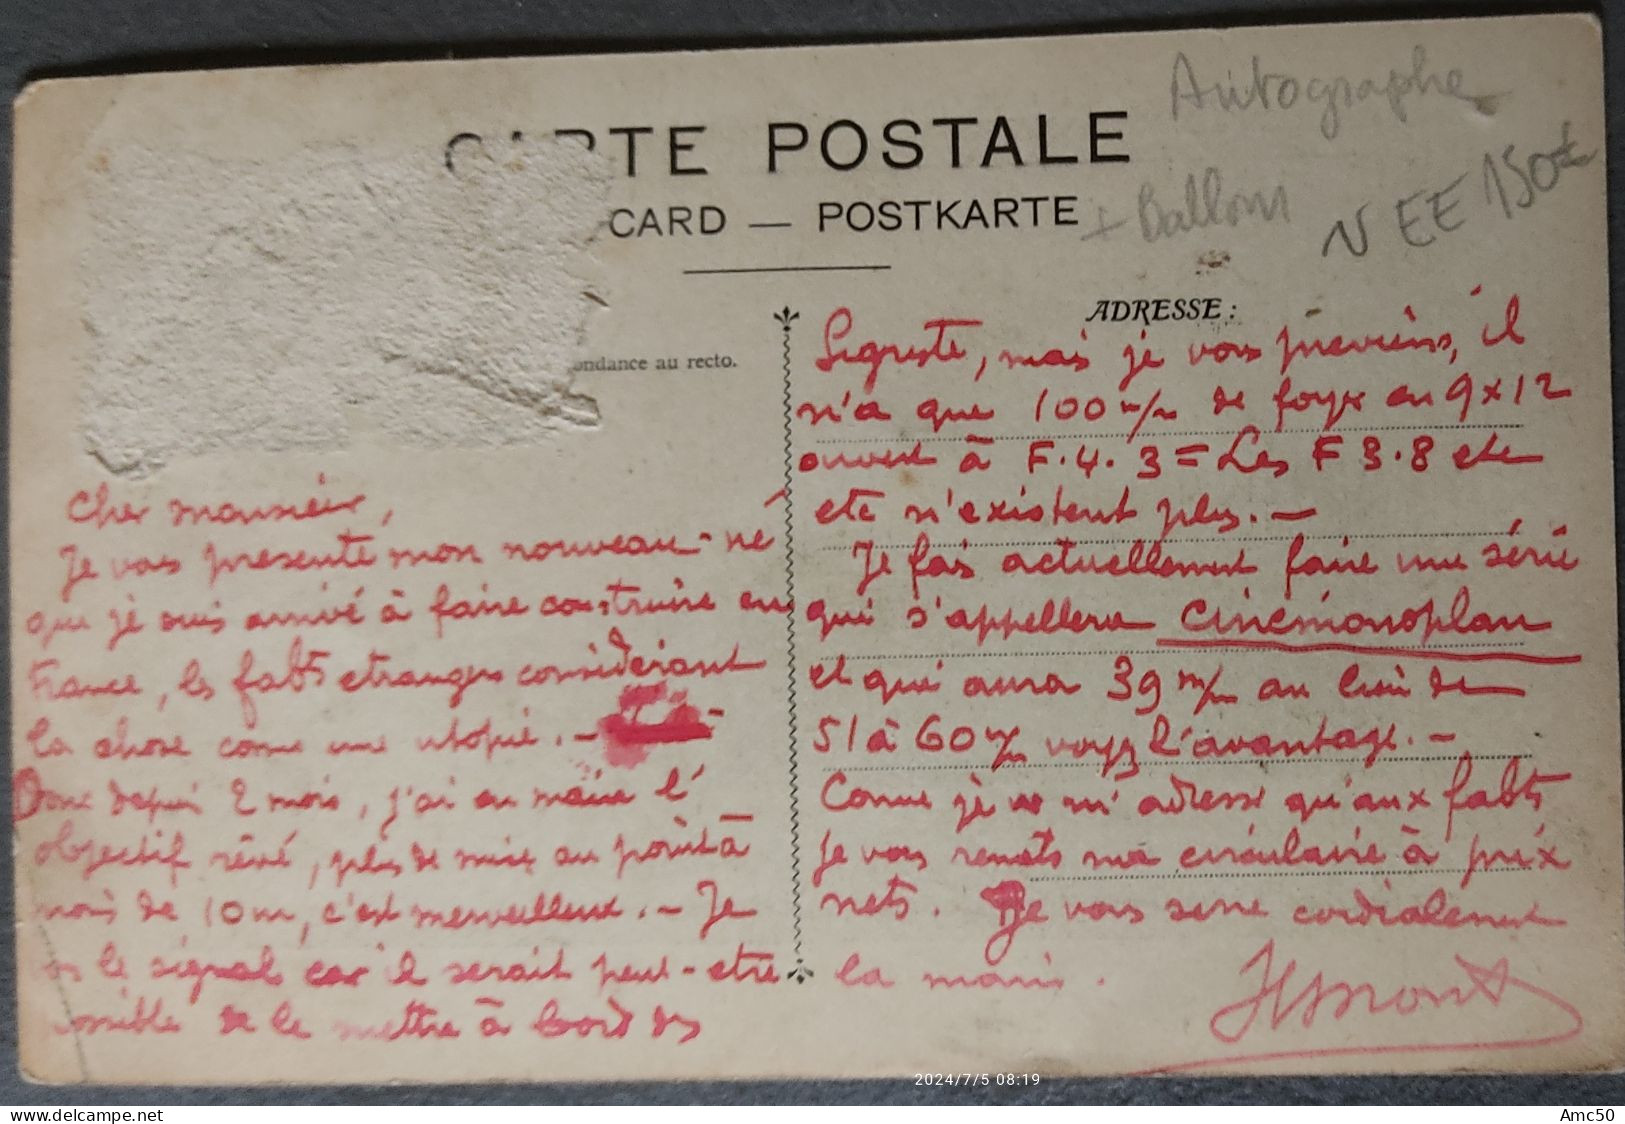 Autographe
CARTE POSTALE
+ Ballon
N EE 150€
CARD — POSTKARTE
ADRESSE :
ondance au recto.
Cher monsieur,
Je vous presente mon nouveau-né
que je suis arrivé à faire construire en
France, les fabts etrangers considerant
la chose come une utopie. -
Donc depuis 2 mois, j'ai en main l'
objectif rêvé, plus de mise au point à
moins de 10m, c'est merveilleux. - Je
le signal car il serait peut-etre
possible de le mettre à bord des
Sigriste, mais je vous previens, il
n'a que 100 m/m de foyer en 9x12
ouvert à F.4.3 = Les F 3.8 etc
etc n'existent plus. -
Je fais actuellement faire une série
qui s'appellera Cinémonoplan
et qui aura 39 m/m au lieu de
51 à 60 m/m voyez l'avantage. -
Come je m'adresse qu'aux fabts
je vous remets ma circulaire à prix
nets. Je vous serre cordialement
la main.
2024/7/5 08:19
delcampe.net
Amc50